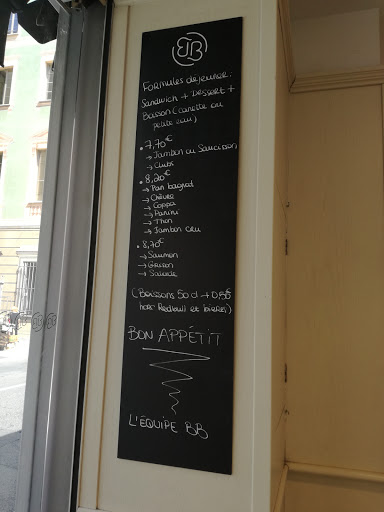 BB
Formules déjeuner :
Sandwich + Dessert +
Boisson (canette ou
petite eau)
• 7,70€
→ Jambon ou Saucisson
→ Clubs
• 8,20€
→ Pan bagnat
→ Chèvre
→ Coppa
→ Panini
→ Thon
→ Jambon cru
• 8,70€
→ Saumon
→ Grison
→ Salade
(Boissons 50cl → 0,5€
hors Redbull et bières)
BON APPÉTIT
L'ÉQUIPE BB